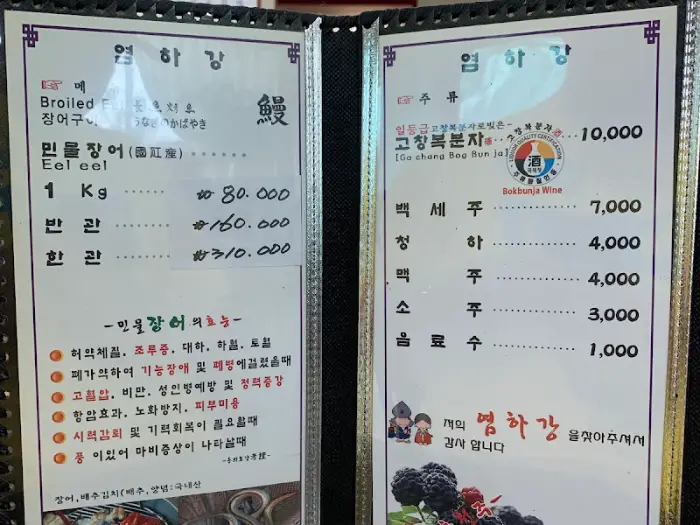 염 하 강
☞ 메
Broiled
장어구 うなぎのかばやき
鰻
민물장어(國産) ······
Eel eel
1 Kg ······ ₩ 80.000
반 관 ······ ₩160.000
한 관 ······ ₩310.000
-민물장어의효능-
허약체질, 조루증, 대하, 하혈, 토혈
폐가약하여 기능장애 및 폐병에걸렸을때
고혈압, 비만, 성인병예방 및 정력증강
항암효과, 노화방지, 피부미용
시력감퇴 및 기력회복이 필요할때
풍 이있어 마비증상이 나타날때
장어,배추김치(배추,양념:국내산
염 하 강
☞ 주 류
일등급고창복분자로빚은-
고창복분자 ······ 10,000
[Go chang Bog Bun ja]
LIQUOR QUALITY CERTIFICATION
酒
Bokbunja Wine
백 세 주 ······ 7,000
청 하 ······ 4,000
맥 주 ······ 4,000
소 주 ······ 3,000
음 료 수 ······ 1,000
저희 염하강 을찾아주셔서
감사 합니다